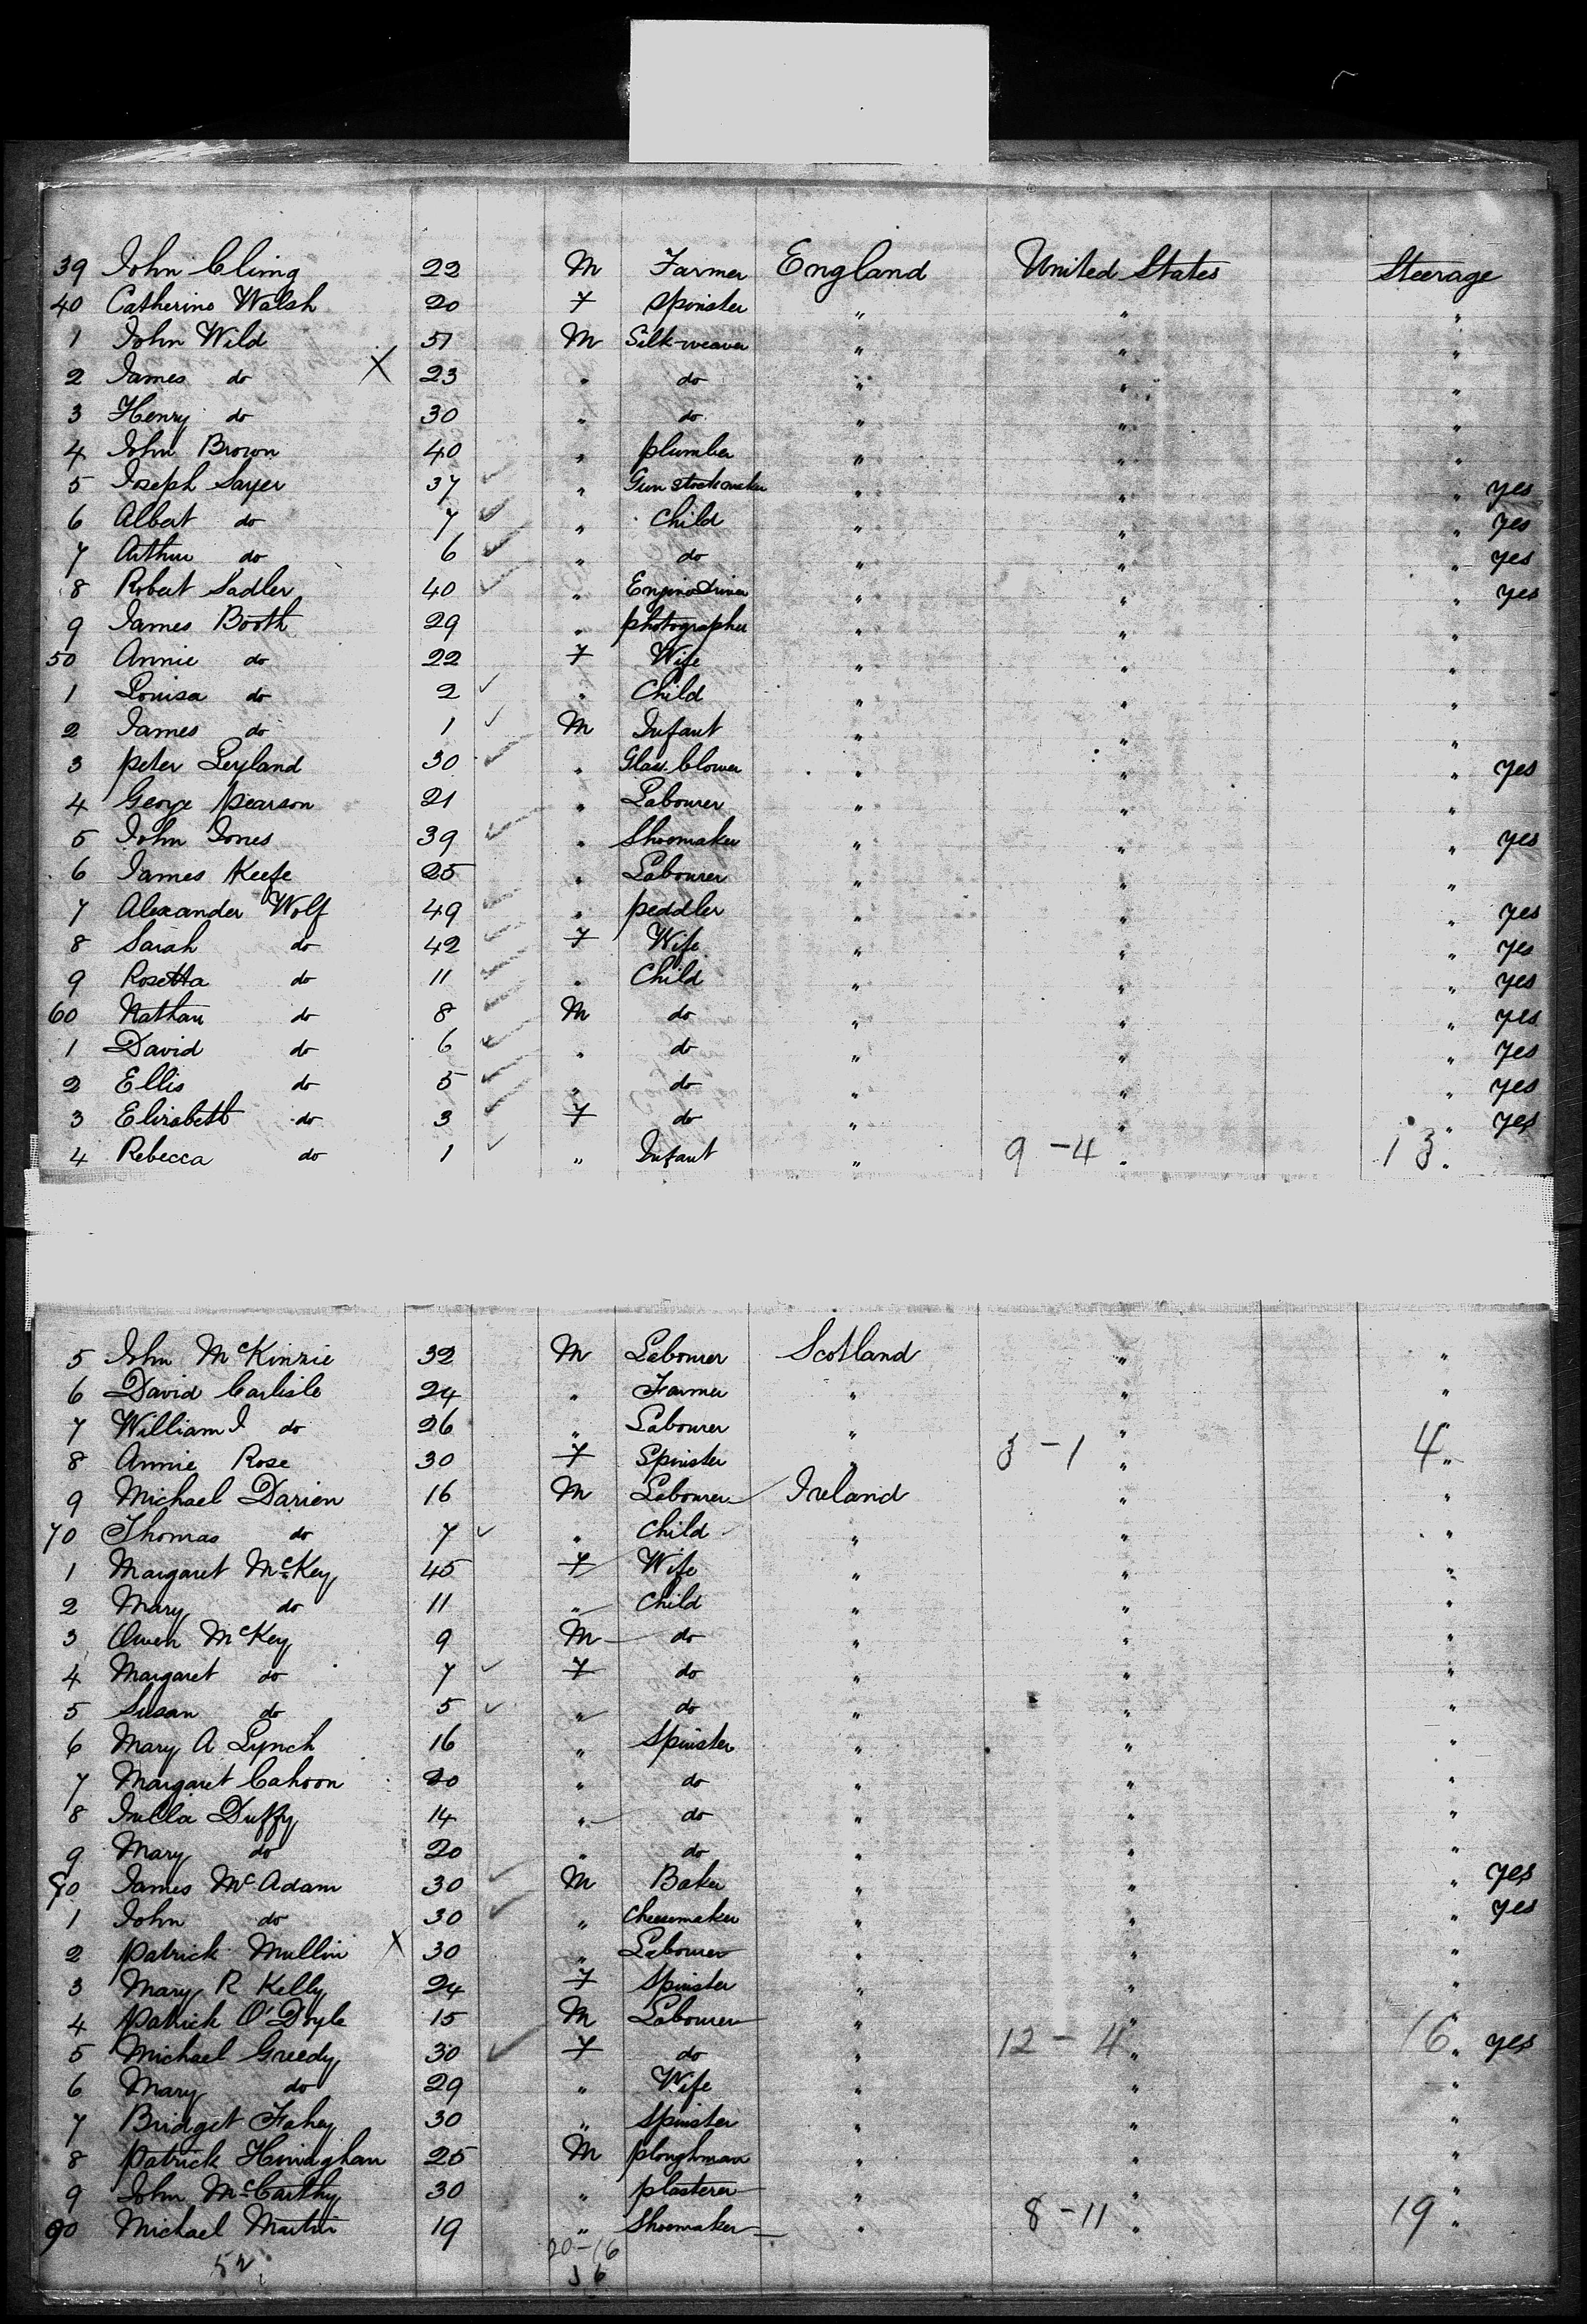 39 John Cling 22 M Farmer England United States Steerage
40 Catherine Walsh 20 F Spinster " " "
1 John Wild 51 M Silk-weaver " " "
2 James do X 23 " do " " "
3 Henry do 30 " do " " "
4 John Brown 40 " plumber " " "
5 Joseph Sayer 37 ✓ " Gun stock maker " " " yes
6 Albert do 7 ✓ " Child " " " yes
7 Arthur do 6 ✓ " do " " " yes
8 Robert Sadler 40 ✓ " Engine Driver " " " yes
9 James Booth 29 " photographer " " "
50 Annie do 22 F Wife " " "
1 Louisa do 2 ✓ " Child " " "
2 James do 1 ✓ M Infant " " "
3 Peter Leyland 30 ✓ " Glass blower " " " yes
4 George Pearson 21 " Labourer " " "
5 John Jones 39 ✓ " Shoemaker " " " yes
6 James Keefe 25 " Labourer " " "
7 Alexander Wolf 49 ✓ " peddler " " " yes
8 Sarah do 42 ✓ F Wife " " " yes
9 Rosetta do 11 ✓ " Child " " " yes
60 Nathan do 8 ✓ M do " " " yes
1 David do 6 ✓ " do " " " yes
2 Ellis do 5 ✓ " do " " " yes
3 Elizabeth do 3 ✓ F do " " " yes
4 Rebecca do 1 ✓ " Infant " 9-4 " 13 "
5 John McKinzie 32 M Labourer Scotland " "
6 David Carlisle 24 " Farmer " " "
7 William J do 26 " Labourer " " "
8 Annie Rose 30 F Spinster " 3-1 " 4 "
9 Michael Darien 16 M Labourer Ireland " "
70 Thomas do 7 ✓ " Child " " "
1 Margaret McKey 45 F Wife " " "
2 Mary do 11 " Child " " "
3 Owen McKey 9 M do " " "
4 Margaret do 7 ✓ F do " " "
5 Susan do 5 ✓ " do " " "
6 Mary A Lynch 16 " Spinster " " "
7 Margaret Cahoon 20 " do " " "
8 Duffy 14 " do " " "
9 Mary do 20 " do " " "
80 James McAdam 30 ✓ M Baker " " " yes
1 John do 30 ✓ " Cheesemaker " " " yes
2 Patrick Mullin X 30 " Labourer " " "
3 Mary R Kelly 24 F Spinster " " "
4 Patrick O'Doyle 15 M Labourer " " "
5 Michael Greedy 30 ✓ F do " 12-4 " 16 " yes
6 Mary do 29 " Wife " " "
7 Bridget Fahey 30 " Spinster " " "
8 Patrick 25 M ploughman " " "
9 John McCarthy 30 " plasterer " " "
90 Michael Martin 19 " Shoemaker " 8-11 " 19 "
52 20-16
36